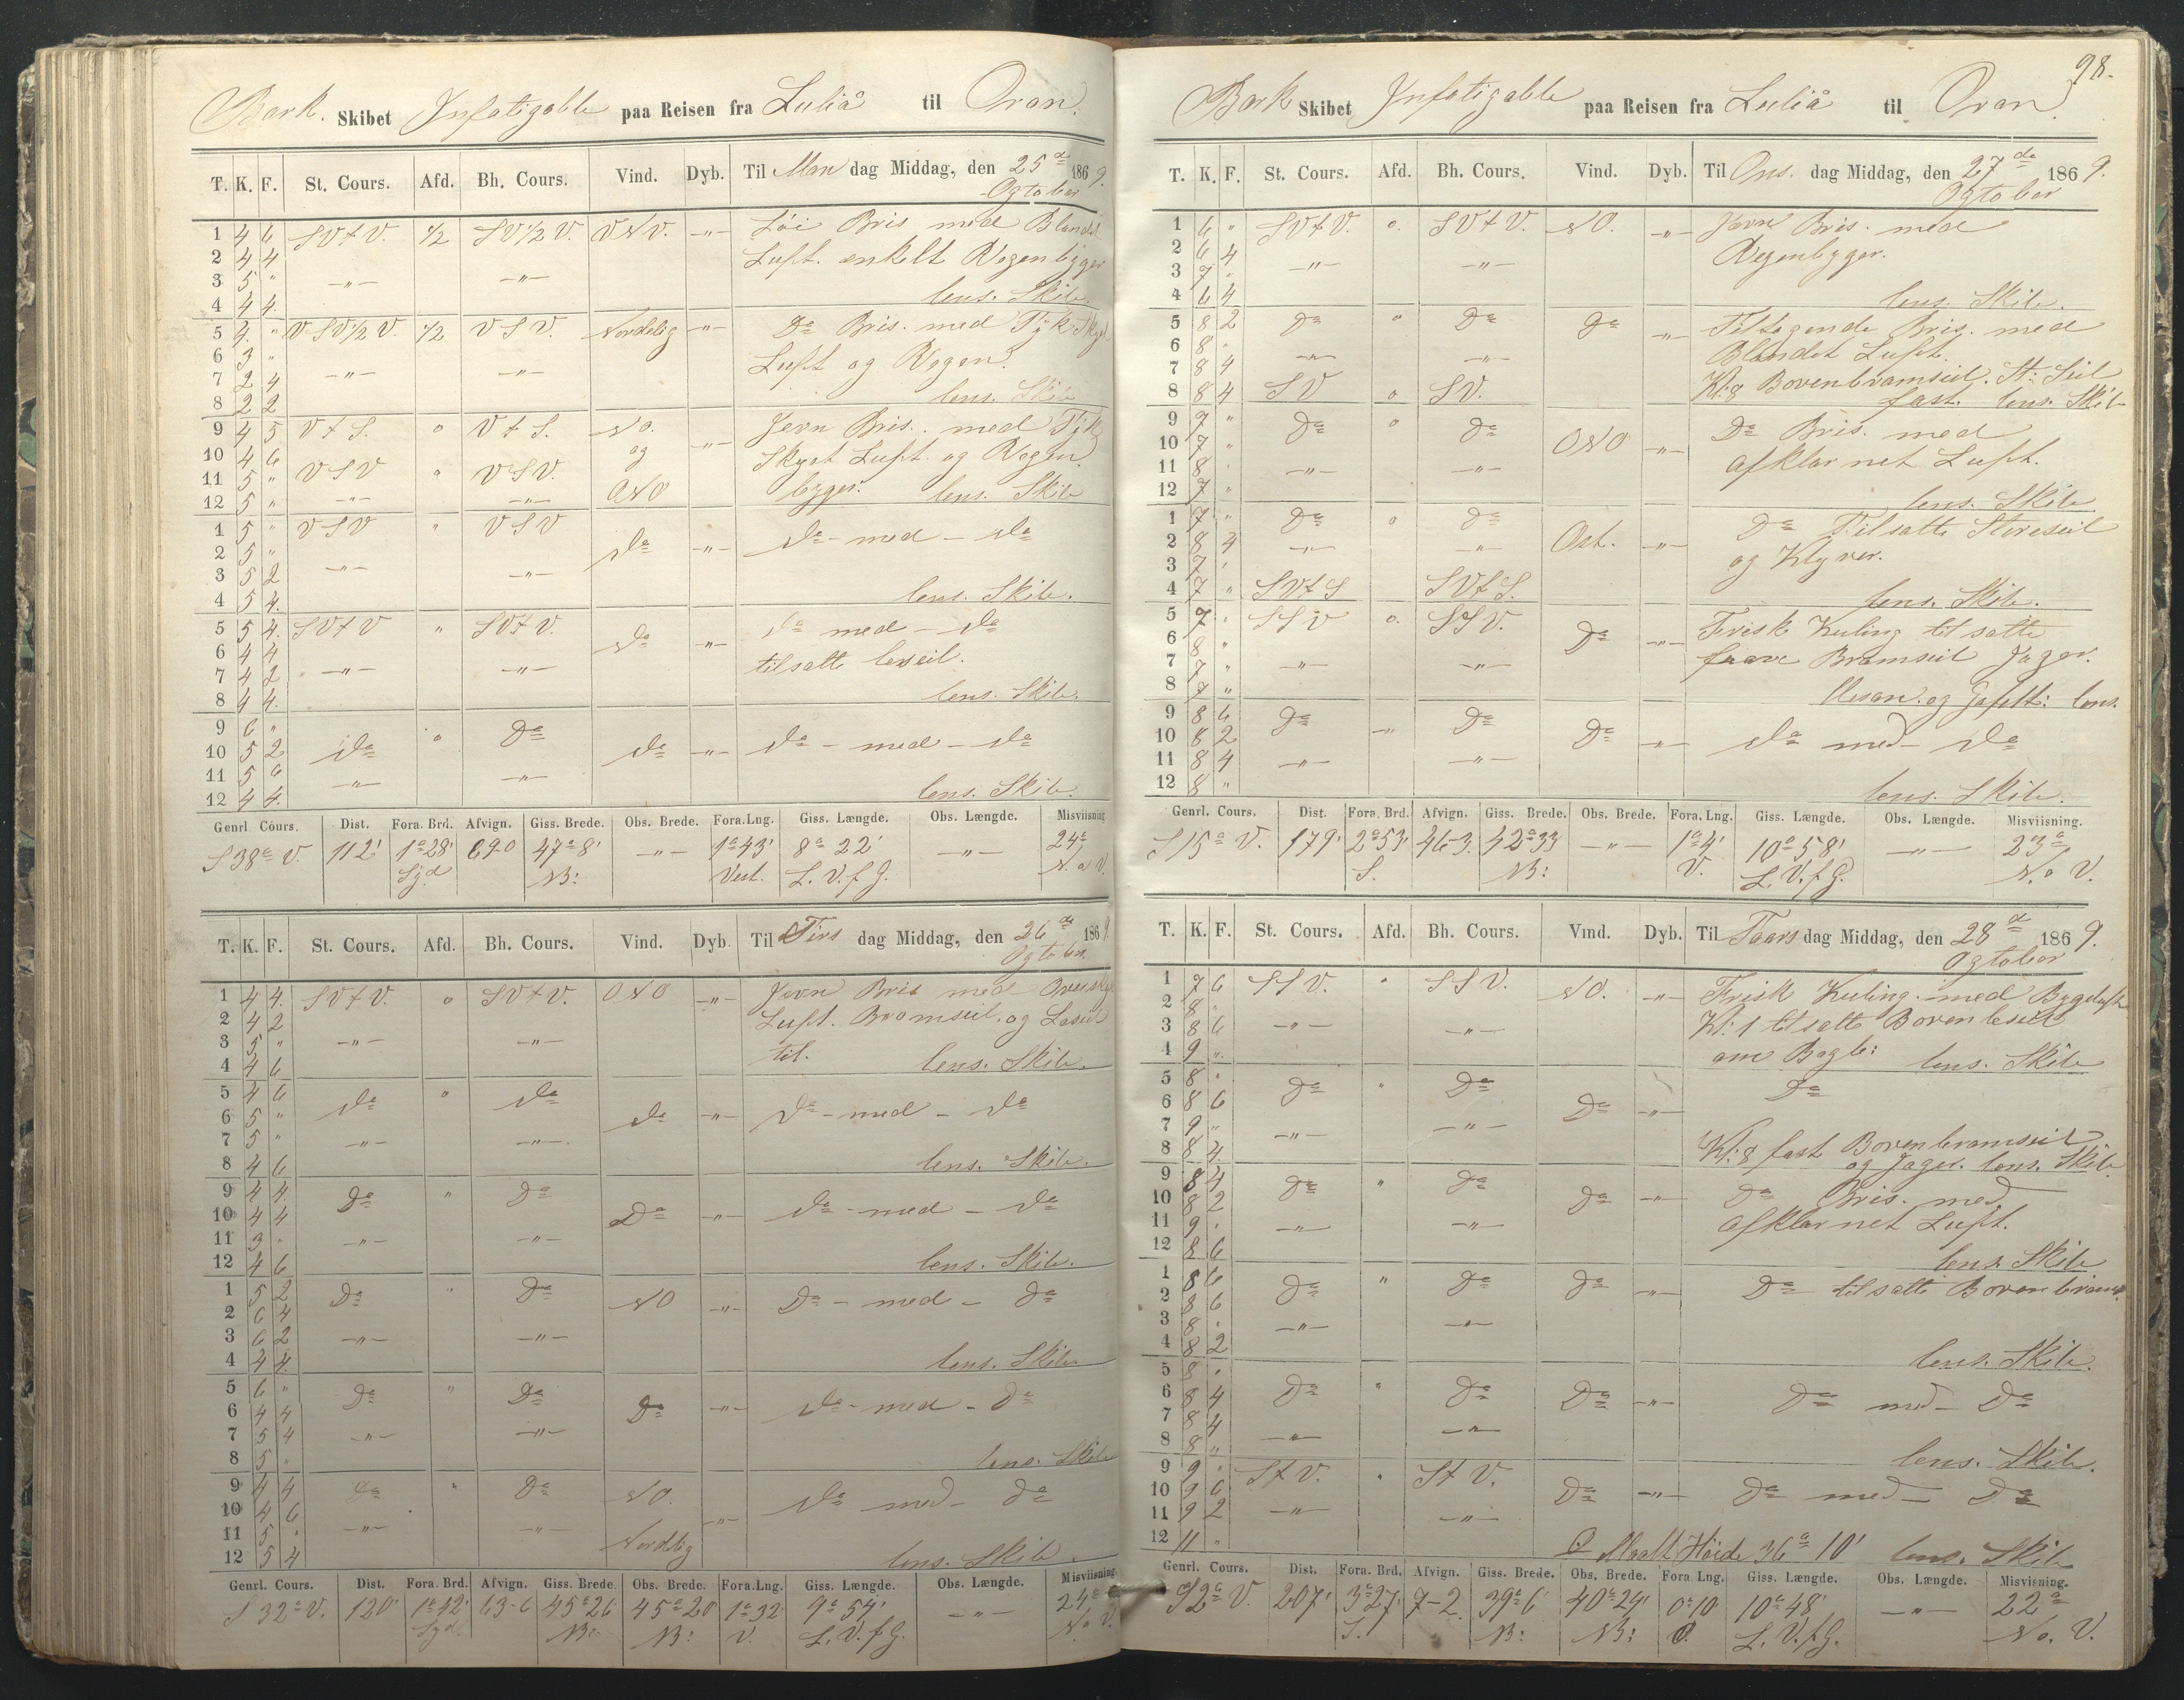 Bark. Skibet Infatigable paa Reisen fra Luliå til Oran.
T. K. F. St. Cours. Afd. Bh. Cours. Vind. Dyb. Til Man dag Middag, den 25de 1869.
Ogtober
1 4 6 SVtV. 1/2 SV1/2V. VNV. -"- Løi Bris med Blandet
2 4 4 Luft. enkelt Regenbyger
3 5 " -"- -"-
4 4 4. lens. Skib.
5 4. " VSV1/2V. 1/2 VSV. Nordelig -"- Do Bris. med Tyk Skyet
6 3 " Luft og Regen.
7 2 4 -"- -"-
8 2 2 lens. Skib
9 4 5 VtS. o VtS. NO. Jevn Bris. med Tyk
10 4 6 og -"- Skyet Luft. og Regen
11 5 " VSV " VSV. byger. lens. Skib
12 5 " -"- -"- ONO
1 5 " VSV " VSV
2 5 " do -"- do - med - do
3 5 2 -"- -"-
4 5 4. lens. Skib.
5 5 4. SVtV " SVtV. do med - do
6 4 4 do -"- tilsatte leseil.
7 4 2 -"- -"-
8 4 4. lens. Skib.
9 6 " o Do
10 5 2 do do -"- do - med - do
11 5 6 -"- -"-
12 4 4. lens. Skib.
Genrl. Cours. Dist. Fora. Brd. Afvign. Giss. Brede. Obs. Brede. Fora. Lng. Giss. Længde. Obs. Længde. Misviisning
S38oV. 112' 1o28' 69-0 47o8' -"- 1o43' 8o22' -"- 24o
Syd NB: Vest. L. V. f G. N. o V.
T. K. F. St. Cours. Afd. Bh. Cours. Vind. Dyb. Til Tirs dag Middag, den 26de 1869.
Ogtober.
1 4 4. SVtV. o SVtV. ONO -"- Jevn Bris med Overskyt
2 4 2 Luft. Bramseil. og Leseil
3 5 " -"- -"- til.
4 4 6 lens. Skib.
5 4 6 do o do
6 5 " do -"- do - med - do
7 5 " -"- -"-
8 4 6 lens. Skib.
9 4 4. Do " Do
10 4 4 Do -"- do - med - do
11 3 " -"- -"-
12 4 6 lens. Skib.
1 5 2 Do " Do NO -"- Do - med - do
2 6 4
3 6 2 -"- -"-
4 4 4. lens. Skib.
5 6 " Do " Do
6 4 4 Do -"- do - med - do
7 5 4 -"- -"-
8 5 " lens. Skib
9 4 4 Do " Do NO. do med - do
10 4 6 -"-
11 5 " -"- -"- Nordlig
12 5 4 lens. Skib.
Genrl. Cours. Dist. Fora. Brd. Afvign. Giss. Brede. Obs. Brede. Fora. Lng. Giss. Længde. Obs. Længde. Misviisning.
S32oV. 120' 1o42' 63-6 45o26 45o20 1o32' 9o54' -"- 24o
Syd. NB: NB: V. L. V. f G. N. o V.
98.
Bark Skibet Infatigable paa Reisen fra Luliå til Oran.
T. K. F. St. Cours. Afd. Bh. Cours. Vind. Dyb. Til Ons. dag Middag, den 27de 1869.
Ogtober
1 6 " SVtV. o. SVtV. NO. -"- Jevn Bris. med
2 6 4 Regenbyger.
3 7 " -"- -"-
4 6 4 lens. Skib.
5 8 2 Do " Do Do -"- Tiltagende Bris. med
6 8 " -"- -"- Blandet Luft.
7 8 4 Kl: 8 Bovenbramseil. St: Seil
8 8 4 SV o SV. fast. lens. Skib
9 7 " Do o Do Do Bris. med
10 7 " ONO -"- afklarnet Luft.
11 8 " -"- -"-
12 7 " lens. Skib.
1 7 " Do o Do Do Tilsatte Storeseil
2 8 4 -"- -"- Ost. -"- og Klyver.
3 7 "
4 7 " SVtS SVtS. lens. Skib.
5 7 " SSV o. SSV. Frisk Kuling tilsatte
6 8 " Do -"- faare Bramseil Jager.
7 7 " -"- -"-
8 7 " Mesan. og Gafelt: lens.
9 8 6 Do Do
10 8 2 -"- Do -"- do med - do
11 8 4 -"- -"-
12 8 " lens. Skib.
Genrl. Cours. Dist. Fora. Brd. Afvign. Giss. Brede. Obs. Brede. Fora. Lng. Giss. Længde. Obs. Længde. Misviisning.
S15oV. 179' 2o53' 46-3. 42o33 -"- 1o4' 10o58' -"- 23o
S. NB: V. L. V. f G. N. o V.
T. K. F. St. Cours. Afd. Bh. Cours. Vind. Dyb. Til Taars dag Middag, den 28de 1869.
Ogtober
1 7 6 SSV. " SSV. NO. -"- Frisk Kuling. med Bygeluft
2 8 " Kl: 1 tilsatte Bovenleseil
3 8 6 -"- -"- om Bagb:
4 9 " lens. Skib
5 8 " Do " Do Do
6 8 6 Do -"-
7 9 " -"- -"- Kl: 8 fast Bovenbramseil
8 8 4. og Jager. lens. Skib
9 8 4 Do " Do Do -"- Do Bris. med
10 8 2 afklarnet Luft.
11 9 " -"- -"-
12 8 6 lens. Skib
1 8 6 Do " Do Do -"- Do tilsatte Bovenbram.
2 8 6
3 8 " -"- -"-
4 8 2 lens. Skib.
5 8 "
6 8 4 Do " Do Do -"- Do med - Do
7 8 4 -"-
8 8 " -"- lens. Skib.
9 9 " StV. " StV.
10 9 6 Do -"- Do med - Do
11 9 2 -"- -"-
12 11 " Maalt Høide 36o 10' lens. Skib
Genrl. Cours. Dist. Fora. Brd. Afvign. Giss. Brede. Obs. Brede. Fora. Lng. Giss. Længde. Obs. Længde. Misvisning.
S2oV. 207' 3o27' 7-2. 39o6' 40o24' 0o10 10o48' -"- 22o
S. NB: NB: L. V. f G. No. V.